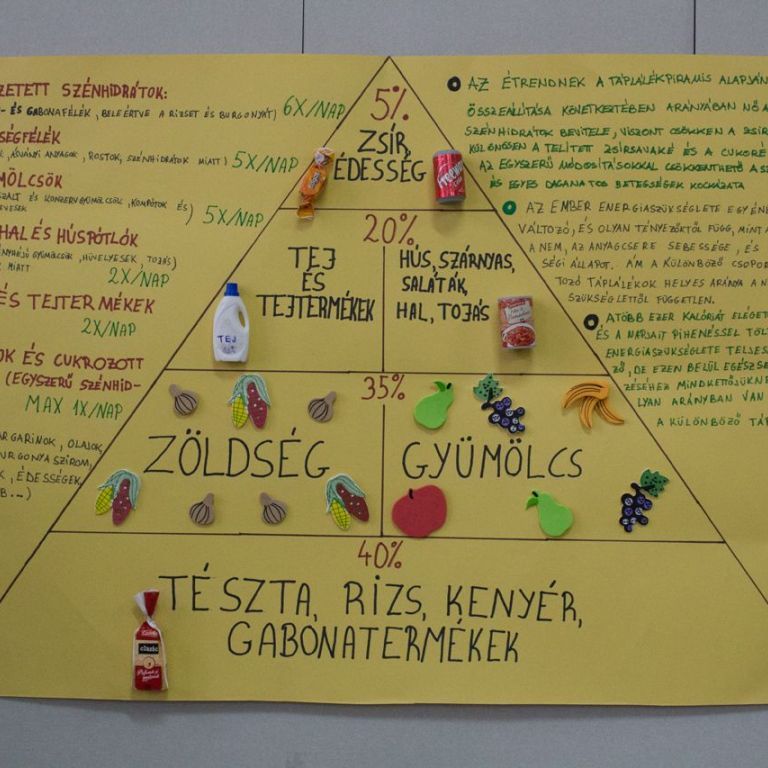 ZETETT SZÉNHIDRÁTOK:
- ÉS GABONAFÉLÉK, BELEÉRTVE A RIZSET ÉS BURGONYÁT) 6X/NAP
SÉGFÉLÉK
K, ÁSVÁNYI ANYAGOK, ROSTOK, SZÉNHIDRÁTOK MIATT) 5X/NAP
MÖLCSÖK
SZALT ÉS KONZERVGYÜMÖLCSÖK, KOMPÓTOK ÉS) 5X/NAP
HAL ÉS HÚSPÓTLÓK
GYÜMÖLCSÖK, HÜVELYESEK, TOJÁS)
MIATT 2X/NAP
ÉS TEJTERMÉKEK
2X/NAP
OK ÉS CUKROZOTT
(EGYSZERŰ SZÉNHID-
MAX 1X/NAP
ARGARINOK, OLAJOK,
URGONYA SZIROM,
K, ÉDESSÉGEK,
B...)
5%
ZSÍR,
ÉDESSÉG
20%
TEJ
ÉS
TEJTERMÉKEK
TEJ
HÚS, SZÁRNYAS,
SALÁTÁK,
HAL, TOJÁS
35%
ZÖLDSÉG
GYÜMÖLCS
40%
TÉSZTA, RIZS, KENYÉR,
GABONATERMÉKEK
clasic
AZ ÉTRENDNEK A TÁPLÁLÉKPIRAMIS ALAPJÁN
ÖSSZEÁLLÍTÁSA KÖVETKEZTÉBEN ARÁNYÁBAN NŐ A
SZÉNHIDRÁTOK BEVITELE, VISZONT CSÖKKEN A ZSÍR
KÜLÖNÖSEN A TELÍTETT ZSÍRSAVAKÉ ÉS A CUKORÉ
AZ EGYSZERŰ MÓDOSÍTÁSOKKAL CSÖKKENTHETŐ A SZ
ÉS EGYES DAGANATOS BETEGSÉGEK KOCKÁZATA
AZ EMBER ENERGIASZÜKSÉGLETE EGYÉNE
VÁLTOZÓ, ÉS OLYAN TÉNYEZŐKTŐL FÜGG, MINT A
A NEM, AZ ANYAGCSERE SEBESSÉGE, ÉS
SÉGI ÁLLAPOT. ÁM A KÜLÖNBÖZŐ CSOPOR
TOZÓ TÁPLÁLÉKOK HELYES ARÁNYA A N
SZÜKSÉGLETTŐL FÜGGETLEN.
A TÖBB EZER KALÓRIÁT ELÉGET
ÉS A NAPJAIT PIHENÉSSEL TÖL
ENERGIASZÜKSÉGLETE TELJES
ZŐ, DE EZEN BELÜL EGÉSZSÉ
ZÉSÉHEZ MINDKETTŐJÜKN
LYAN ARÁNYBAN VAN
A KÜLÖNBÖZŐ TÁP